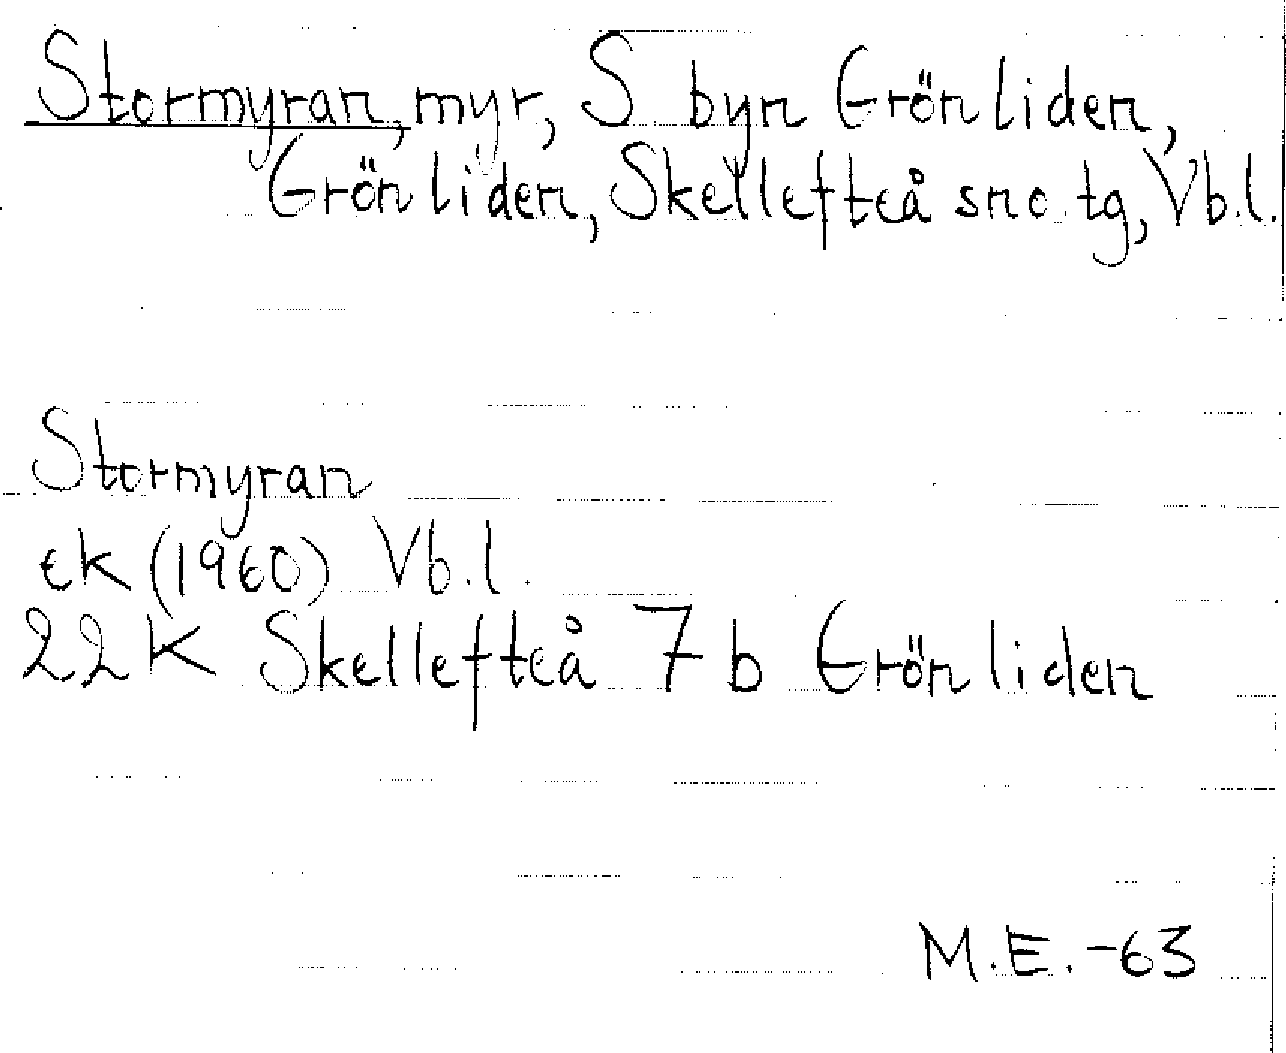 Stormyran, myr, S byn Grönliden,
Grönliden, Skellefteå sno tg, Vb.l.
Stormyran
ek (1960) Vb.l.
22K Skellefteå 7b Grönliden
M.E.-63